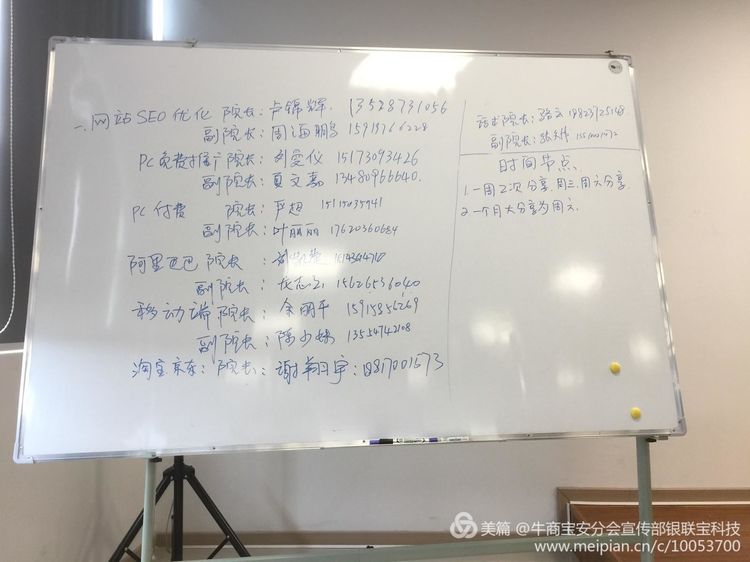 一、网站SEO优化 院长：卢锦辉 13528731056
副院长：周海鹏 15919766228
PC免费推广院长：刘爱仪 15173093426
副院长：夏文嘉 13480966640
PC付费 院长：严超 15115035941
副院长：叶丽丽 17620360684
阿里巴巴 院长：
副院长： 15626536040
移动端院长：余丽平 15915855269
副院长：陈少妹 13554742108
淘宝京东：院长：谢翔宇：
院长：张云 18823725148
副院长：
时间节点
1.一周2次分享 周三.周六分享
2.一个月大分享为周六.
美篇 @牛商宝安分会宣传部银联宝科技
www.meipian.cn/c/10053700